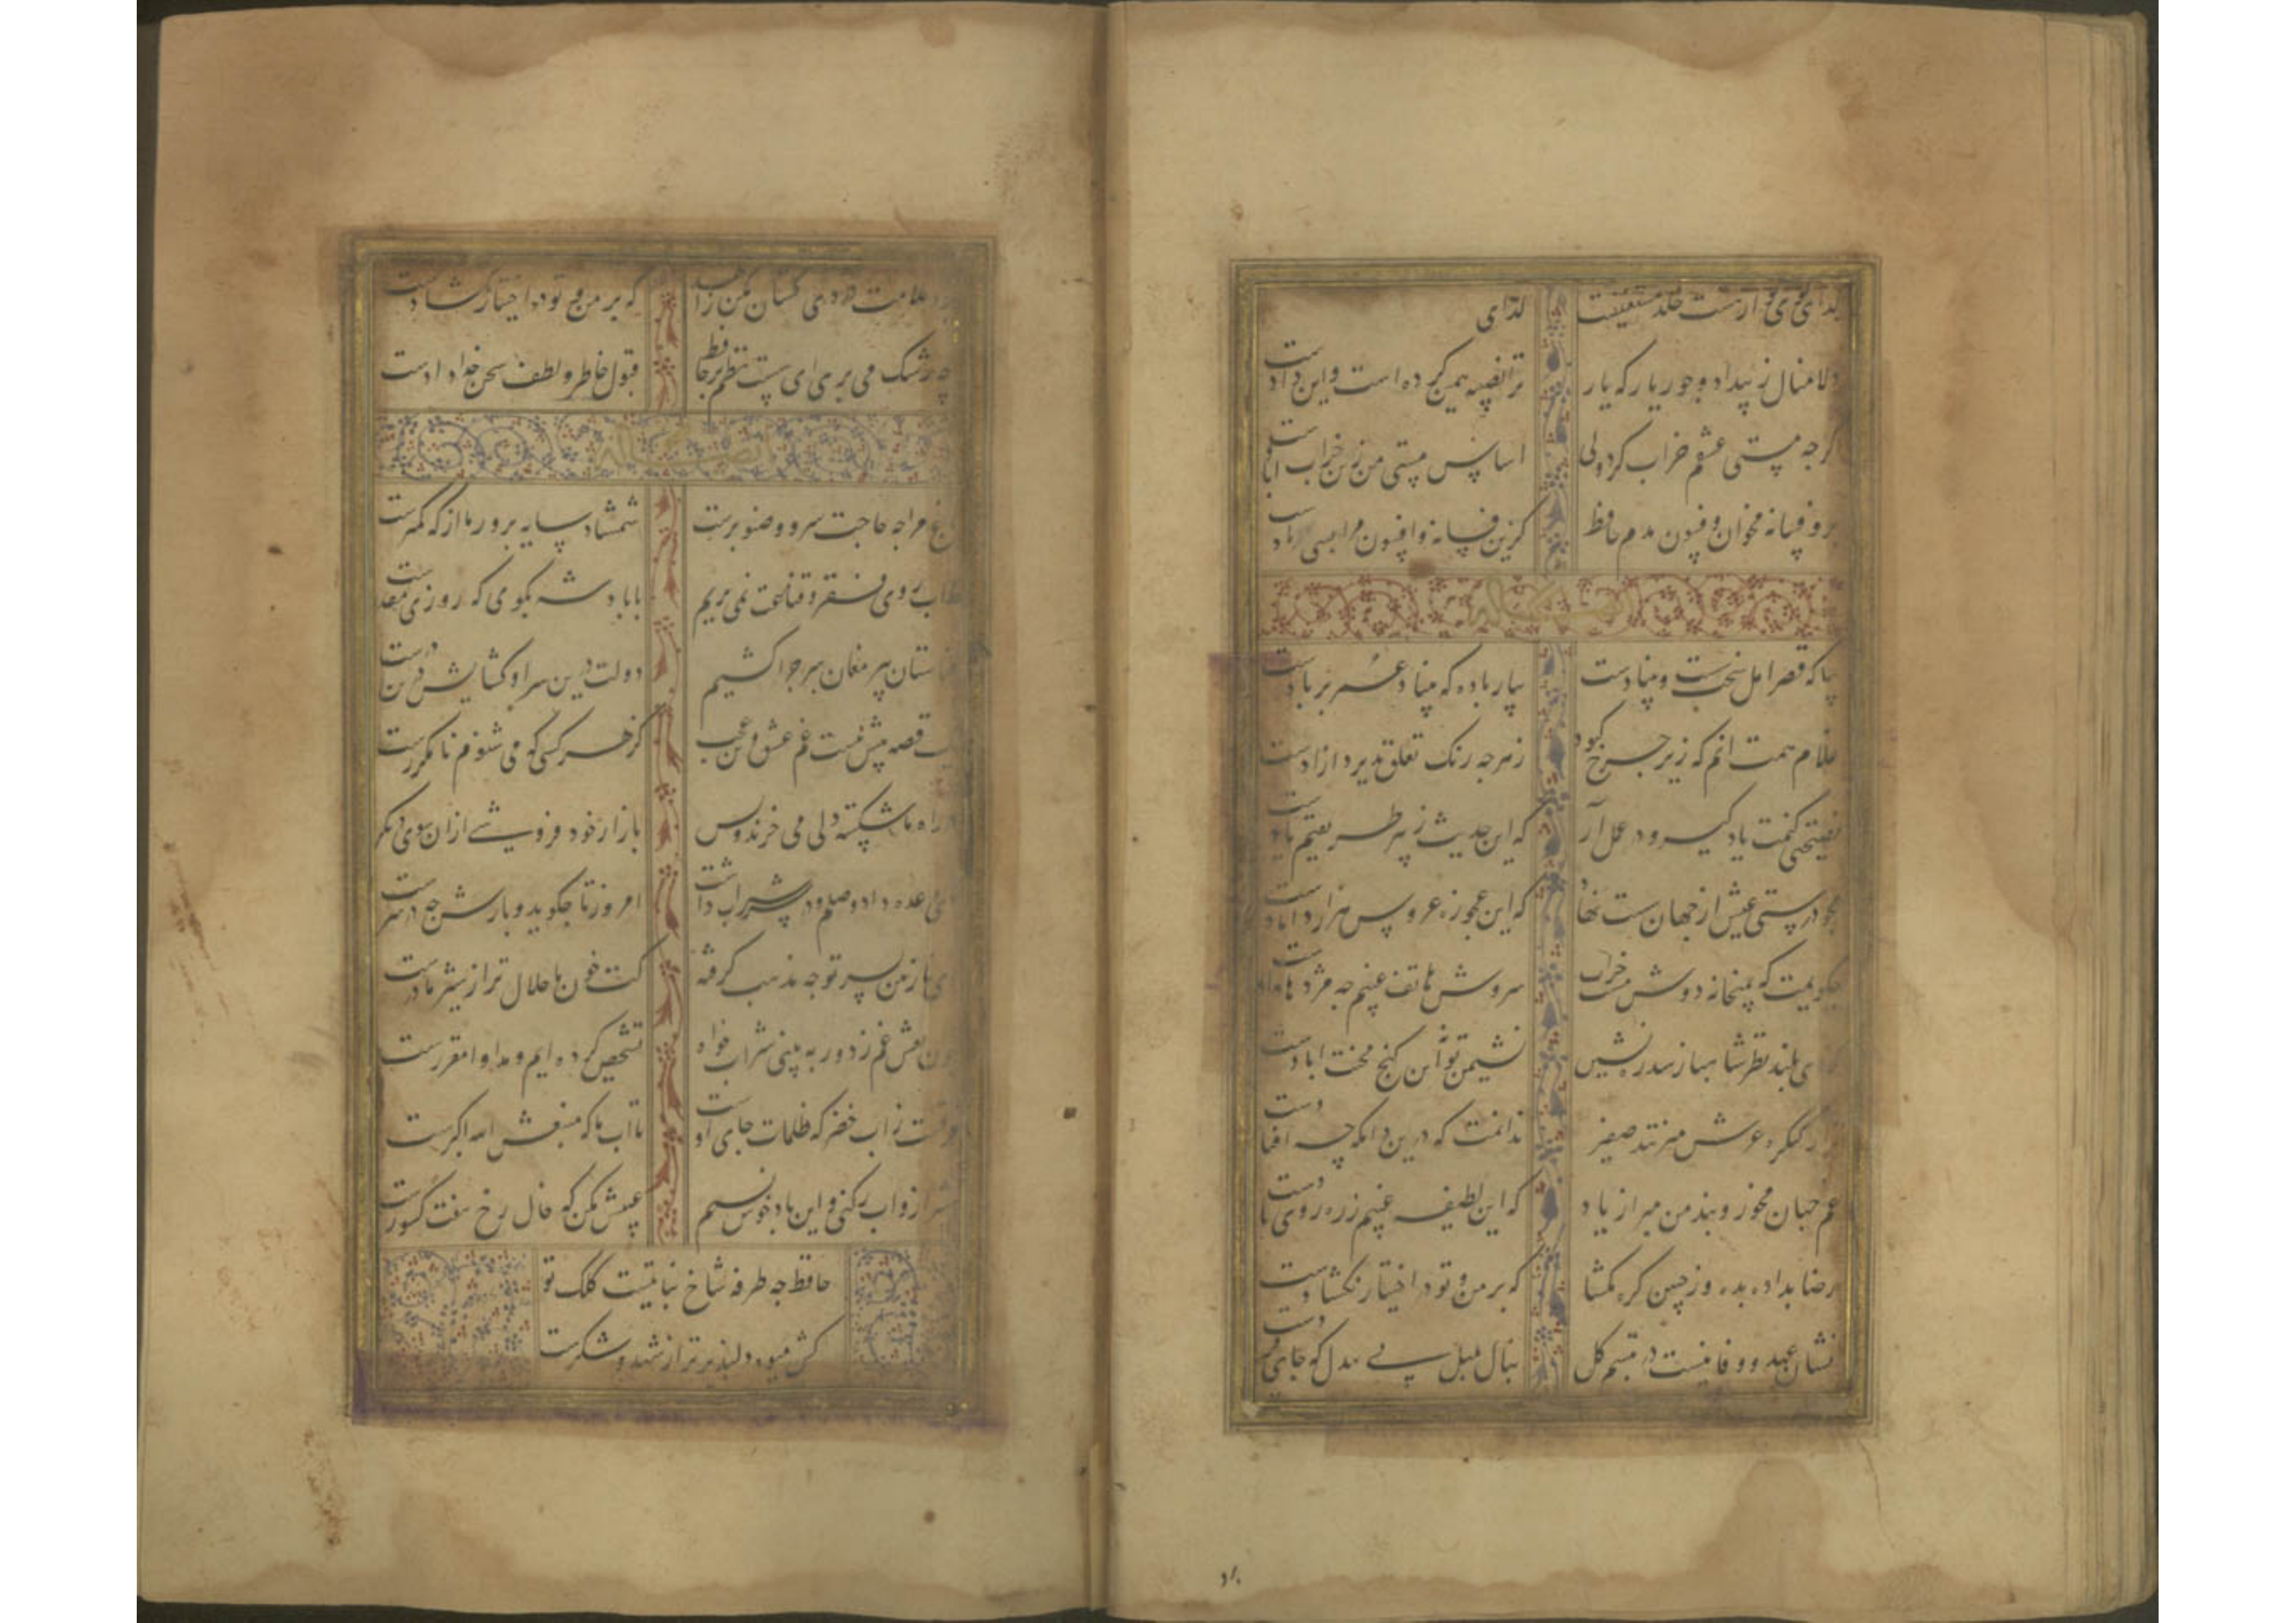 کوی ارهشت خلد مستغنیت لدای
دلا منال ز بیداد و جور یار که یار ترا نصیبه همین کرده است و این دادست
کرجه مستی عشقم خراب کرد ولی اساس هستی من زین خراب ابادست
برو فسانه مخوان و فسون مدم حافظ کزین فسانه و افسون مرا بسی یادست
ایضا له
بیا که قصر امل سخت سست بنیادست بیار باده که بنیاد عمر بر بادست
غلام همت انم که زیر چرخ کبود ز هرجه رنک تعلق پذیرد ازادست
نصیحتی کنمت یاد کیر و در عمل آر که این حدیث ز پیر طریقتم یادست
مجو درستی عیش از جهان سست نهاد که این عجوزه عروس هزار دامادست
جکویمت که بمیخانه دوش مست خراب سروش هاتف غیبم جه مژدها دادست
ای بلند نظر شاهباز سدره نشین نشیمن تو نه این کنج محنت ابادست
ز کنکره عرش میزنند صفیر ندانمت که درین دامکه چه افتادست
غم جهان مخور و پند من مبر از یاد که این لطیفه غیبم ز ره روی یادست
رضا بداده بده وز جبین کره بکشا که بر من و تو در اختیار نکشادست
نشان عهد و وفا نیست در تبسم کل بنال بلبل بی دل که جای فریادست
برو ملامت دردی کشان مکن زاهد که بر من و تو در اختیار نکشادست
جه رشک می بری ای سست نظم بر حافظ قبول خاطر و لطف سخن خدادادست
ایضا له
باغ مرا جه حاجت سرو و صنوبرست شمشاد سایه پرور ما از که کمترست
ما اب روی فقر و قناعت نمی بریم با پادشه بکوی که روزی مقدرست
از استان پیر مغان سر جرا کشیم دولت درین سرا و کشایش درین درست
یک قصه بیش نیست غم عشق و این عجب کز هر کسی که می شنوم نامکررست
در راه ما شکسته دلی می خرند و بس بازار خود فروشی از ان سوی دیکرست
دی وعده داد وصلم و در سر شراب داشت امروز تا جکوید و بازش جه در سرست
ای نازنین پسر تو جه مذهب کرفته کت خون ما حلال تر از شیر مادرست
چون نقش غم ز دور به بینی شراب خواه تشخیص کرده ایم و مداوا مقررست
فرقست ز اب خضر که ظلمات جای اوست تا اب ما که منبعش الله اکبرست
شیراز و اب رکنی و این باد خوش نسیم عیبش مکن که خال رخ هفت کشورست
حافظ جه طرفه شاخ نباتیست کلک تو
کش میوه دلپذیر تر از شهد و شکرست